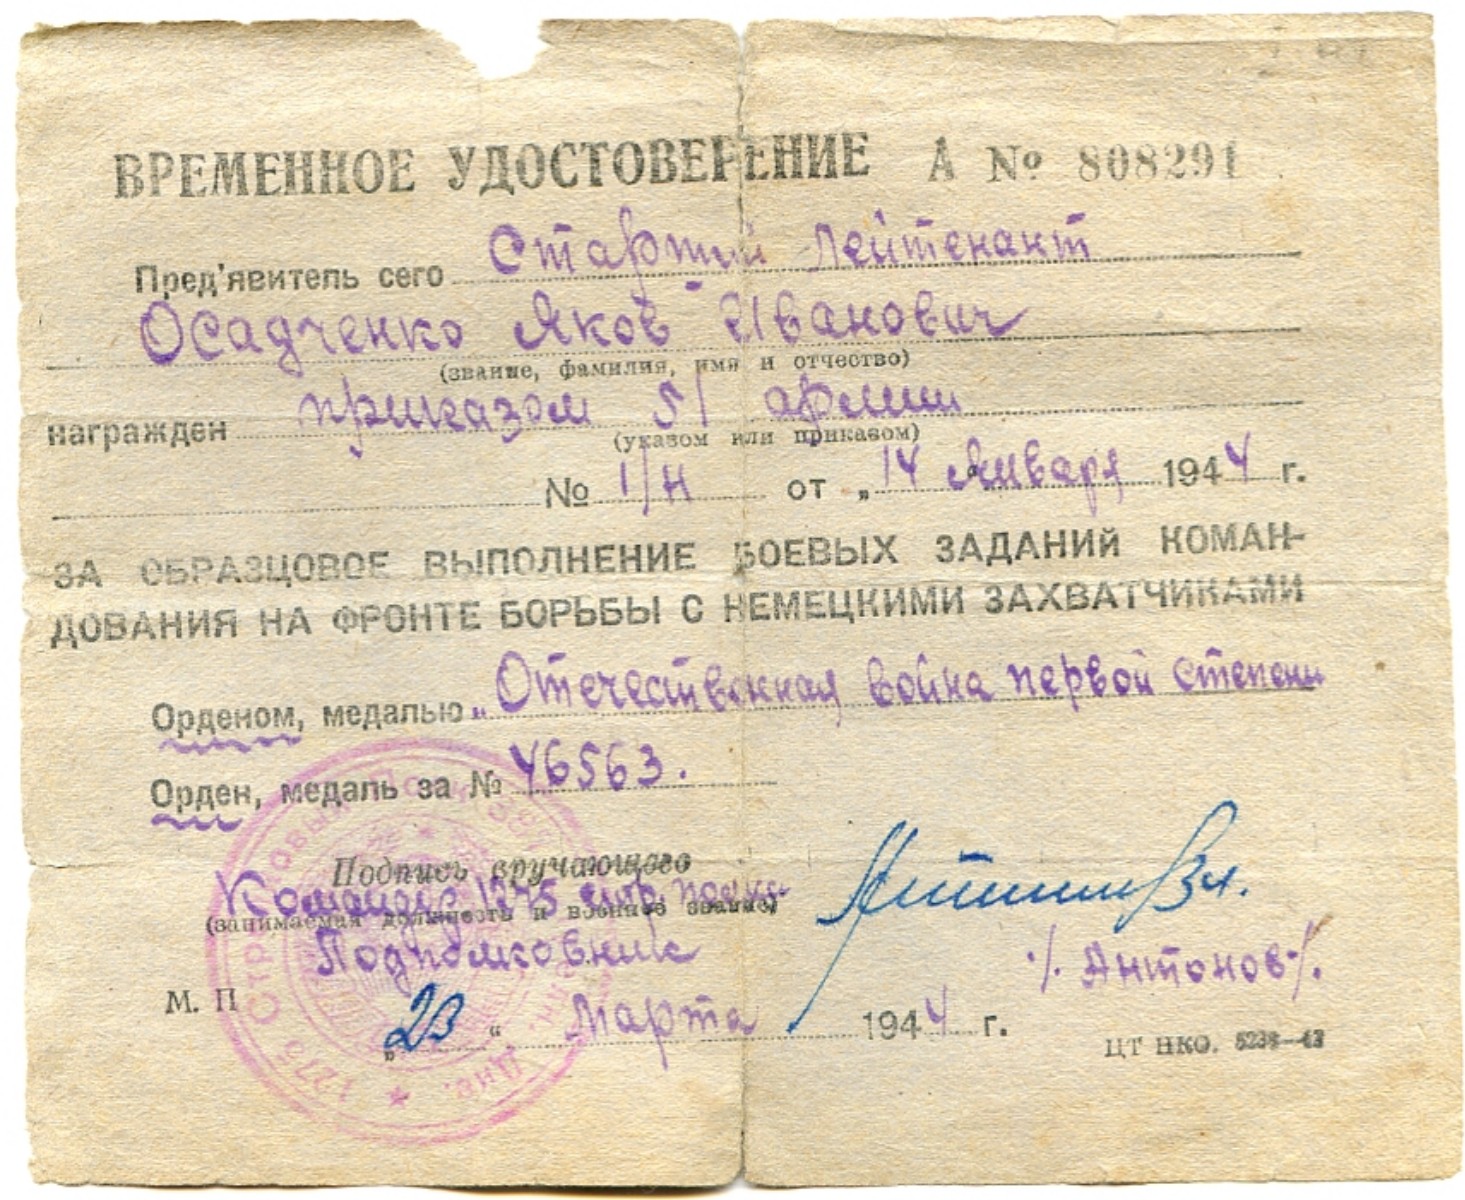 ВРЕМЕННОЕ УДОСТОВЕРЕНИЕ А № 808291
Пред'явитель сего Старший Лейтенант
Осадченко Яков Иванович
(звание, фамилия, имя и отчество)
награжден приказом 51 армии
(указом или приказом)
№ 1/н от „14 Января 1944 г.
ЗА ОБРАЗЦОВОЕ ВЫПОЛНЕНИЕ БОЕВЫХ ЗАДАНИЙ КОМАН-
ДОВАНИЯ НА ФРОНТЕ БОРЬБЫ С НЕМЕЦКИМИ ЗАХВАТЧИКАМИ
Орденом, медалью „Отечественная война первой степени
Орден, медаль за № 46563.
Подпись вручающего
Командир 1275 стр. полка
(занимаемая должность и военное звание)
Подполковник
/. Антонов /.
М. П
„23“ Марта 1944 г.
ЦТ НКО. 5238—43
1275